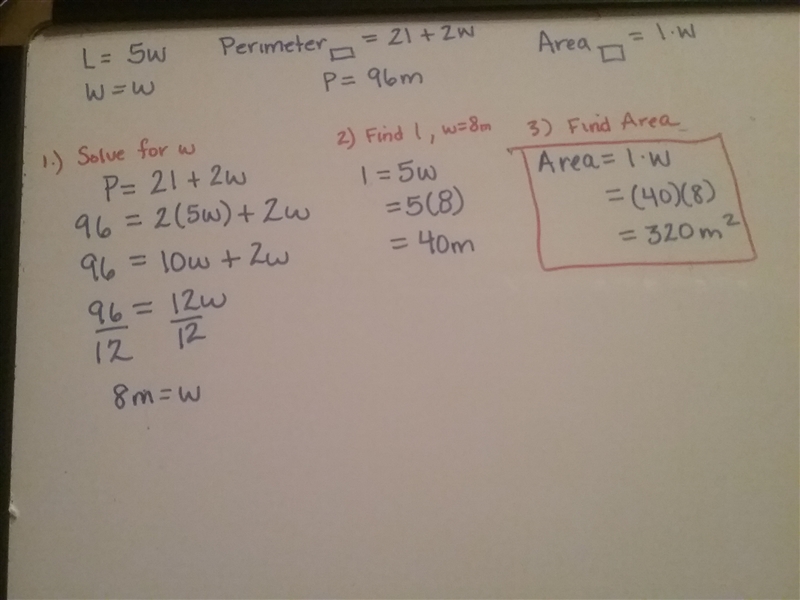 L = 5w
W = w
Perimeter▭ = 2l + 2w
P = 96m
Area▭ = l·w
1.) Solve for w
P = 2l + 2w
96 = 2(5w) + 2w
96 = 10w + 2w
96 = 12w
12 12
8m = w
2) Find l, w=8m
l = 5w
= 5(8)
= 40m
3) Find Area
Area = l·w
= (40)(8)
= 320m²